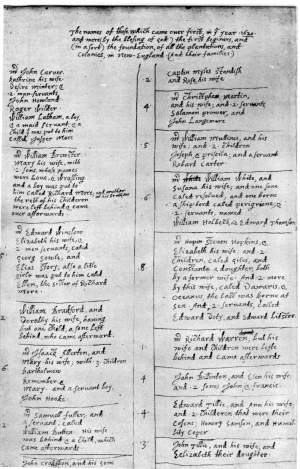 The names of those which came over first, in ye year 1620
and were (by the blesing of God) the first beginers, and
(in a sort) the foundation, of all the plantations, and
Colonies, in New-England (and their families)
mr John Carver.
kathrine his wife.
Desire minter; &
2 man-servants
John Howland
Roger Wilder
William Latham, a boy
& a maid servant, & a
child yt was put to him
called Jasper More
mr William Brewster
Mary his wife, with
2 sons, whose names
were Love & Wrasling
and a boy was put to
him called Richard More; and another
of his brothers
the rest of his children
were left behind & came
over afterwards
mr Edward Winslow
Elizabeth his wife, &
2 men servants, called
Georg Sowle, and
Elias Story; also a litle
girle was put to him called
Ellen, the sister of Richard
More
William Bradford, and
Dorothy his wife, having
but one child, a sone left
behind, who came afterward
mr Isaack Allerton, and
Mary his wife, with 3 children
Bartholmew
Remember &
Mary and a servant boy,
John Hooke
mr Samuell Fuller, and
a servant, called
William Butten. His wife
was behind & a child, which
came afterwards
John Crakston, and his sone
2
Captin Myles Standish
and Rose his wife
4
mr Christpher Martin,
and his wife; and 2 servants,
Salamon Prower, and
John Langemore
5
mr William Mullines, and his
wife; and 2 children
Joseph & Priscila; and a servant
Robart Carter
6
mr William White, and
Susana his wife; and one sone
called Resolved, and one borne
a ship-bord called Perigriene; &
2 servants, named
William Holbeck, & Edward Thomson
8
mr Steven Hopkins, &
Elizabeth his wife; and 2
children, called Giles, and
Constanta a doughter, both
by a former wife. And 2 more
by this wife, called Damaris, &
Oceanus, the last was borne at
sea. And 2 servants, called
Edward Doty, and Edward Litster
1
mr Richard Warren, but his
wife and children were lefte
behind and came afterwards
4
John Billinton, and Elen his wife,
and 2 sones John & Francis
4
Edward Tillie, and Ann his wife,
and 2 children that were their
cosens; Henery Samson, and Humillity
Coper
3
John Tillie, and his wife, and
Eelizabeth their doughter